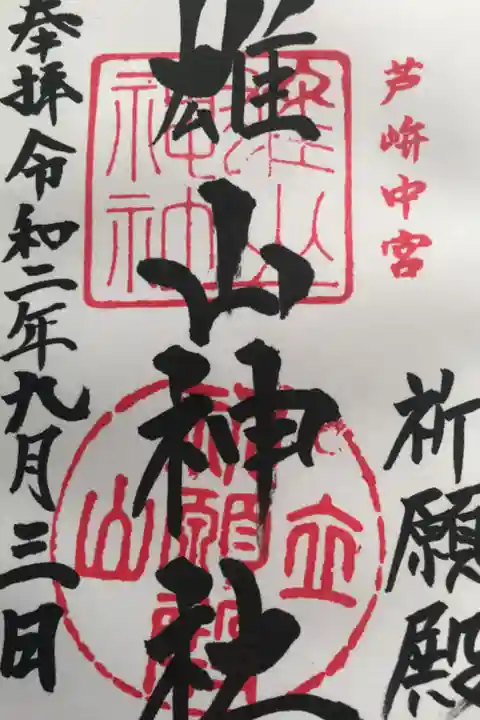 芦峅中宮
祈願殿
雄山神社
雄山神社
立山
祈願殿
奉拝 令和二年九月三日